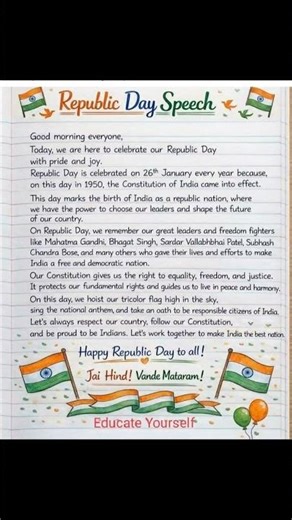 Republic Day Speech
Good morning everyone,
Today, we are here to celebrate our Republic Day
with pride and joy.
Republic Day is celebrated on 26th January every year because,
on this day in 1950, the Constitution of India came into effect.
This day marks the birth of India as a republic nation, where
we have the power to choose our leaders and shape the future
of our country.
On Republic Day, we remember our great leaders and freedom fighters
like Mahatma Gandhi, Bhagat Singh, Sardar Vallabhbhai Patel, Subhash
Chandra Bose, and many others who gave their lives and efforts to make
India a free and democratic nation.
Our Constitution gives us the right to equality, freedom, and justice.
It protects our fundamental rights and guides us to live in peace and harmony.
On this day, we hoist our tricolor flag high in the sky,
sing the national anthem, and take an oath to be responsible citizens of India.
Let's always respect our country, follow our Constitution,
and be proud to be Indians. Let's work together to make India the best nation.
Happy Republic Day to all!
Jai Hind! Vande Mataram!
Educate Yourself